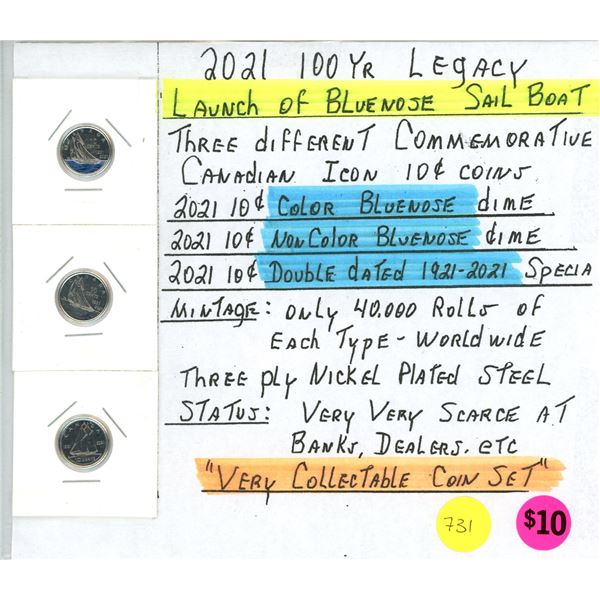 2021 100 Yr Legacy
Launch of Bluenose Sail Boat
Three different Commemorative
Canadian Icon 10¢ coins
2021 10¢ Color Bluenose dime
2021 10¢ NonColor Bluenose dime
2021 10¢ Double dated 1921-2021 Specia
Mintage: only 40,000 Rolls of
Each Type - Worldwide
Three ply Nickel Plated Steel
Status: Very Very Scarce at
Banks, Dealers, etc
"Very Collectable Coin Set"
731
$10